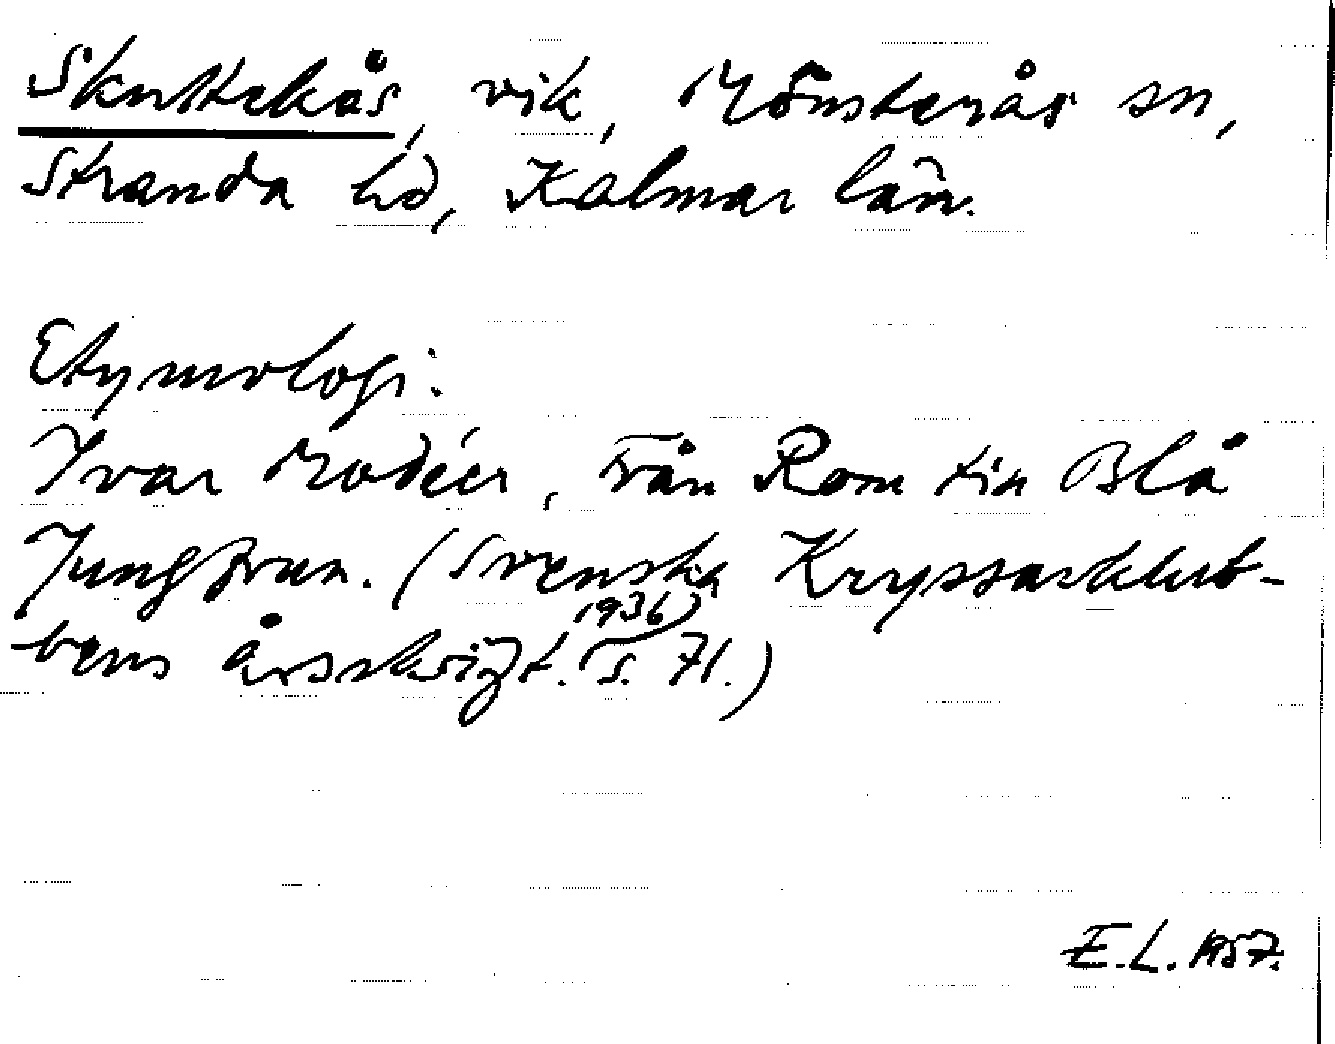 Skuttekås, vik, Mönsterås sn,
Stranda hd, Kalmar län.
Etymologi:
Ivar Modéer, Från Rom till Blå
Jungfrun. (Svenska Kryssarklub-
bens årsskrift. 1936) s. 71.)
E.L. 1957.